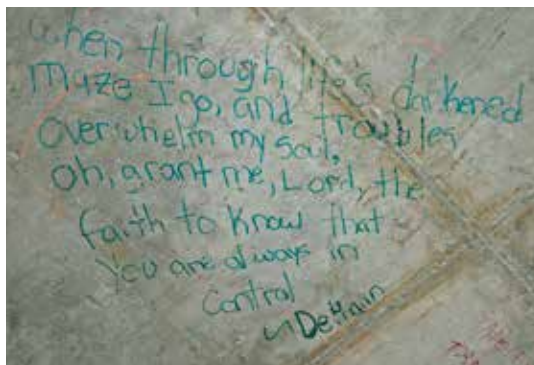 when through life's darkened
maze I go, and troubles
overwhelm my soul,
oh, grant me, Lord, the
faith to know that
you are always in
control